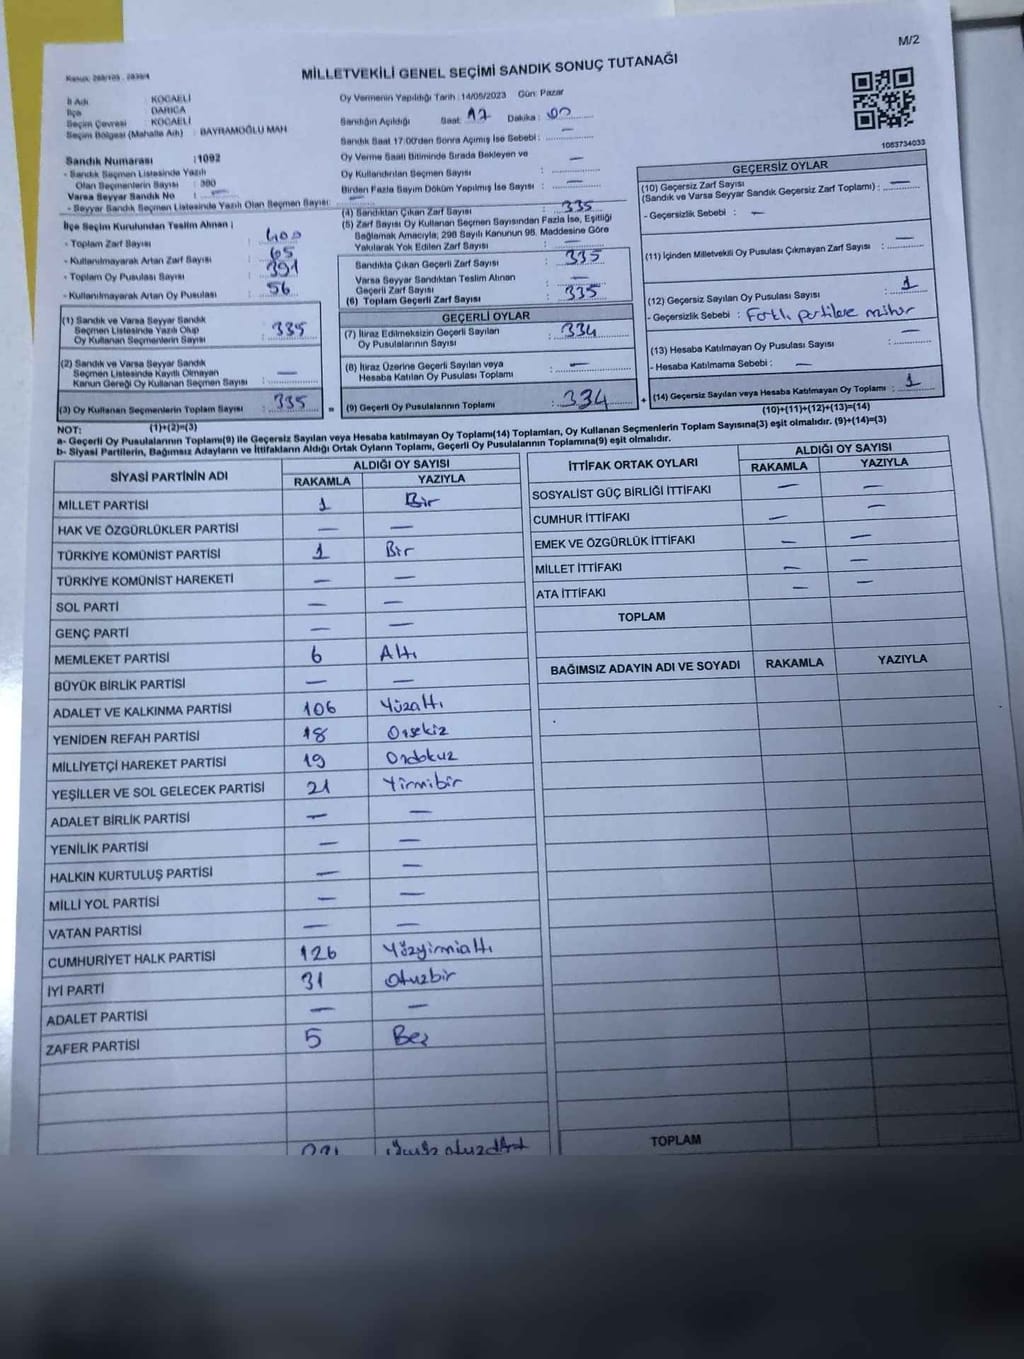 M/2
MİLLETVEKİLİ GENEL SEÇİMİ SANDIK SONUÇ TUTANAĞI
İl Adı : KOCAELİ
İlçe : DARICA
Seçim Çevresi : KOCAELİ
Seçim Bölgesi (Mahalle Adı) : BAYRAMOĞLU MAH
Oy Vermenin Yapıldığı Tarih : 14/05/2023 Gün: Pazar
Sandığın Açıldığı Saat: 17 Dakika: 00
Sandık Saat 17:00'den Sonra Açımış İse Sebebi : —
Oy Verme Saati Bitiminde Sırada Bekleyen ve
Oy Kullandırılan Seçmen Sayısı : —
Birden Fazla Sayım Döküm Yapılmış İse Sayısı : —
1063734033
Sandık Numarası : 1092
- Sandık Seçmen Listesinde Yazılı
Olan Seçmenlerin Sayısı : 380
Varsa Seyyar Sandık No : —
- Seyyar Sandık Seçmen Listesinde Yazılı Olan Seçmen Sayısı: —
İlçe Seçim Kurulundan Teslim Alınan ;
- Toplam Zarf Sayısı : 400
- Kullanılmayarak Artan Zarf Sayısı : 65
- Toplam Oy Pusulası Sayısı : 391
- Kullanılmayarak Artan Oy Pusulası : 56
(1) Sandık ve Varsa Seyyar Sandık
Seçmen Listesinde Yazılı Olup
Oy Kullanan Seçmenlerin Sayısı : 335
(2) Sandık ve Varsa Seyyar Sandık
Seçmen Listesinde Kayıtlı Olmayan
Kanun Gereği Oy Kullanan Seçmen Sayısı : —
(3) Oy Kullanan Seçmenlerin Toplam Sayısı : 335
(4) Sandıktan Çıkan Zarf Sayısı : 335
(5) Zarf Sayısı Oy Kullanan Seçmen Sayısından Fazla İse, Eşitliği
Bağlamak Amacıyla; 298 Sayılı Kanunun 98. Maddesine Göre
Yakılarak Yok Edilen Zarf Sayısı : —
Sandıkta Çıkan Geçerli Zarf Sayısı : 335
Varsa Seyyar Sandıktan Teslim Alınan
Geçerli Zarf Sayısı : —
(6) Toplam Geçerli Zarf Sayısı : 335
GEÇERLİ OYLAR
(7) İtiraz Edilmeksizin Geçerli Sayılan
Oy Pusulalarının Sayısı : 334
(8) İtiraz Üzerine Geçerli Sayılan veya
Hesaba Katılan Oy Pusulası Toplamı : —
= (9) Geçerli Oy Pusulalarının Toplamı : 334
GEÇERSİZ OYLAR
(10) Geçersiz Zarf Sayısı
(Sandık ve Varsa Seyyar Sandık Geçersiz Zarf Toplamı) : —
- Geçersizlik Sebebi : —
(11) İçinden Milletvekili Oy Pusulası Çıkmayan Zarf Sayısı : —
(12) Geçersiz Sayılan Oy Pusulası Sayısı : 1
- Geçersizlik Sebebi : Farklı partilere mühür
(13) Hesaba Katılmayan Oy Pusulası Sayısı : —
- Hesaba Katılmama Sebebi : —
+ (14) Geçersiz Sayılan veya Hesaba Katılmayan Oy Toplamı : 1
(10)+(11)+(12)+(13)=(14)
NOT: (1)+(2)=(3)
a- Geçerli Oy Pusulalarının Toplamı(9) ile Geçersiz Sayılan veya Hesaba katılmayan Oy Toplamı(14) Toplamları, Oy Kullanan Seçmenlerin Toplam Sayısına(3) eşit olmalıdır. (9)+(14)=(3)
b- Siyasi Partilerin, Bağımsız Adayların ve İttifakların Aldığı Ortak Oyların Toplamı, Geçerli Oy Pusulalarının Toplamına(9) eşit olmalıdır.
SİYASİ PARTİNİN ADI ALDIĞI OY SAYISI
RAKAMLA YAZIYLA
MİLLET PARTİSİ 1 Bir
HAK VE ÖZGÜRLÜKLER PARTİSİ — —
TÜRKİYE KOMÜNİST PARTİSİ 1 Bir
TÜRKİYE KOMÜNİST HAREKETİ — —
SOL PARTİ — —
GENÇ PARTİ — —
MEMLEKET PARTİSİ 6 Altı
BÜYÜK BİRLİK PARTİSİ — —
ADALET VE KALKINMA PARTİSİ 106 Yüzaltı
YENİDEN REFAH PARTİSİ 18 Onsekiz
MİLLİYETÇİ HAREKET PARTİSİ 19 Ondokuz
YEŞİLLER VE SOL GELECEK PARTİSİ 21 Yirmibir
ADALET BİRLİK PARTİSİ — —
YENİLİK PARTİSİ — —
HALKIN KURTULUŞ PARTİSİ — —
MİLLİ YOL PARTİSİ — —
VATAN PARTİSİ — —
CUMHURİYET HALK PARTİSİ 126 Yüzyirmialtı
İYİ PARTİ 31 Otuzbir
ADALET PARTİSİ — —
ZAFER PARTİSİ 5 Beş
İTTİFAK ORTAK OYLARI ALDIĞI OY SAYISI
RAKAMLA YAZIYLA
SOSYALİST GÜÇ BİRLİĞİ İTTİFAKI — —
CUMHUR İTTİFAKI — —
EMEK VE ÖZGÜRLÜK İTTİFAKI — —
MİLLET İTTİFAKI — —
ATA İTTİFAKI — —
TOPLAM
BAĞIMSIZ ADAYIN ADI VE SOYADI RAKAMLA YAZIYLA
TOPLAM